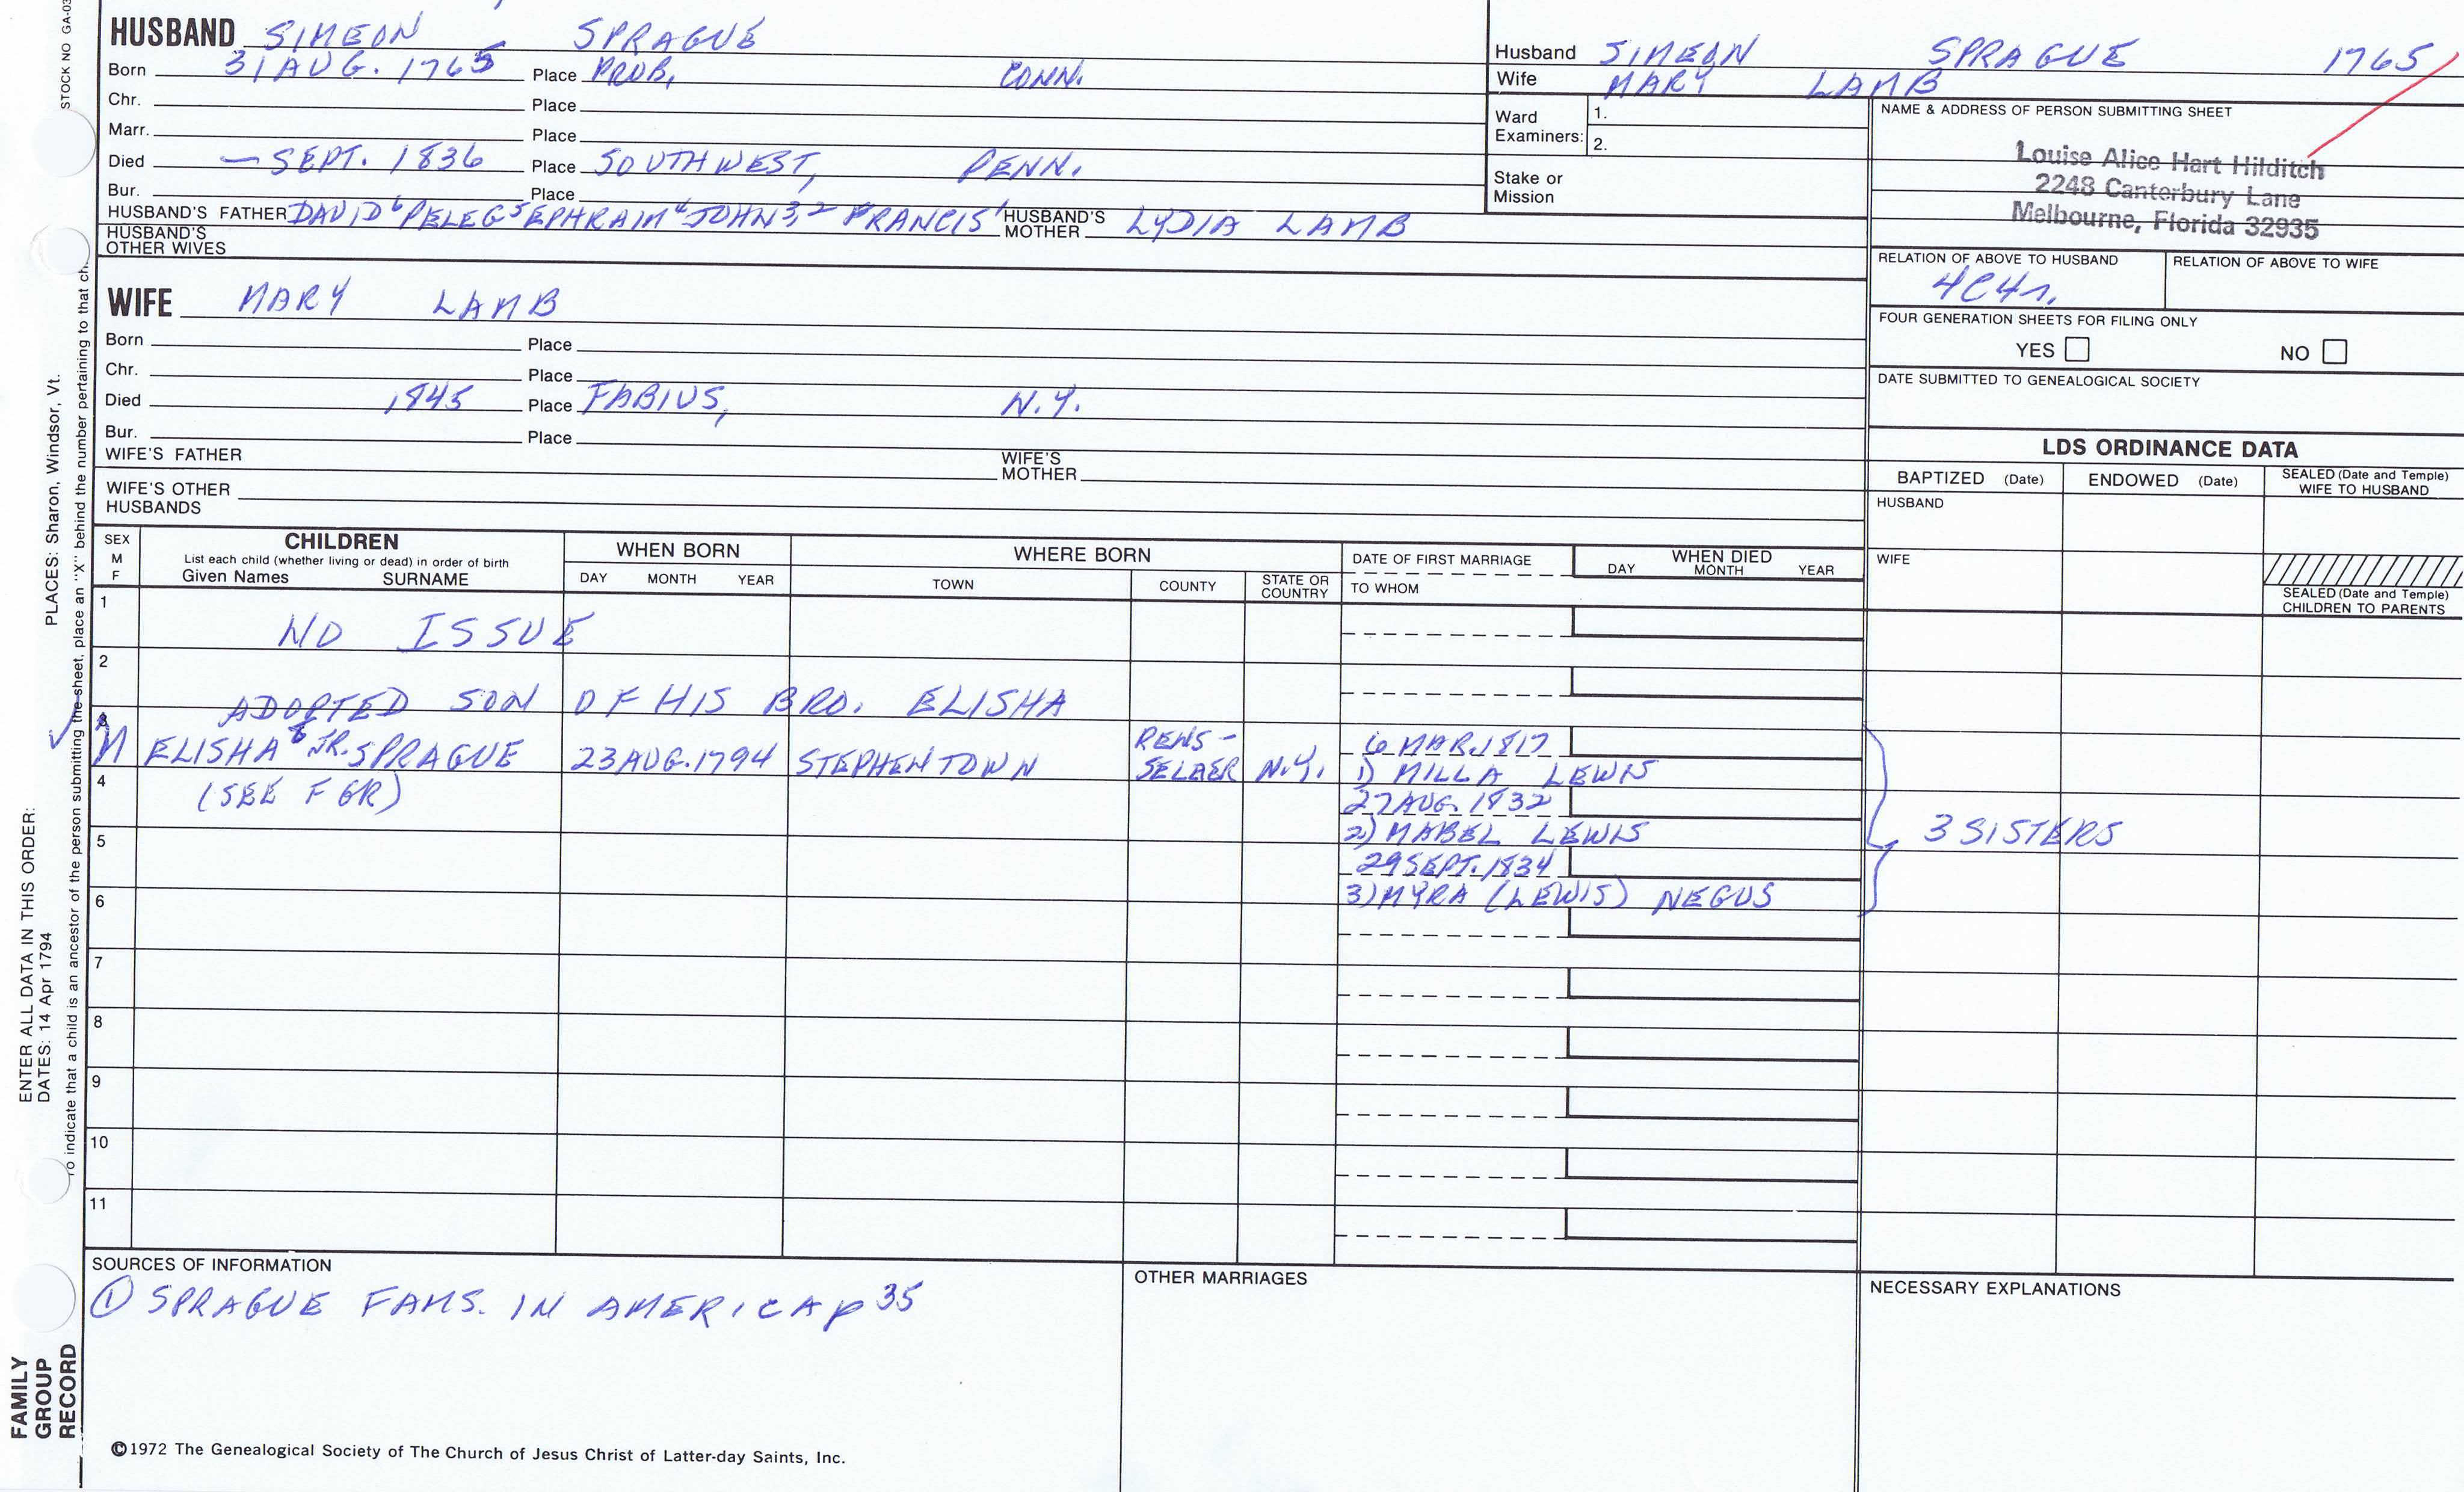 STOCK NO GA-03
HUSBAND SIMEON SPRAGUE
Born 31 AUG. 1765 Place PROB, CONN.
Chr. Place
Marr. Place
Died — SEPT. 1836 Place SOUTHWEST, PENN.
Bur. Place
HUSBAND'S FATHER DAVID⁶ PELEG⁵ EPHRAIM⁴ JOHN³,² FRANCIS¹ HUSBAND'S MOTHER LYDIA LAMB
HUSBAND'S OTHER WIVES
WIFE MARY LAMB
Born Place
Chr. Place
Died 1845 Place FABIUS, N.Y.
Bur. Place
WIFE'S FATHER WIFE'S MOTHER
WIFE'S OTHER HUSBANDS
Husband SIMEON SPRAGUE 1765
Wife MARY LAMB
Ward Examiners: 1.
2.
Stake or Mission
NAME & ADDRESS OF PERSON SUBMITTING SHEET
Louise Alice Hart Hilditch
2248 Canterbury Lane
Melbourne, Florida 32935
RELATION OF ABOVE TO HUSBAND RELATION OF ABOVE TO WIFE
4C4r.
FOUR GENERATION SHEETS FOR FILING ONLY
YES NO
DATE SUBMITTED TO GENEALOGICAL SOCIETY
LDS ORDINANCE DATA
BAPTIZED (Date) ENDOWED (Date) SEALED (Date and Temple) WIFE TO HUSBAND
HUSBAND
WIFE
SEALED (Date and Temple) CHILDREN TO PARENTS
SEX M F CHILDREN WHEN BORN WHERE BORN DATE OF FIRST MARRIAGE WHEN DIED
List each child (whether living or dead) in order of birth
Given Names SURNAME DAY MONTH YEAR TOWN COUNTY STATE OR COUNTRY TO WHOM DAY MONTH YEAR
1 NO ISSUE
2
ADOPTED SON OF HIS BRO. ELISHA
3 M ELISHA⁸ JR. SPRAGUE 23 AUG. 1794 STEPHENTOWN RENS-SELAER N.Y. 6 MAR. 1817
1) MILLA LEWIS
4 (SEE FGR) 27 AUG. 1832
2) MABEL LEWIS 3 SISTERS
5 29 SEPT. 1834
3) MYRA (LEWIS) NEGUS
6
7
8
9
10
11
SOURCES OF INFORMATION OTHER MARRIAGES NECESSARY EXPLANATIONS
① SPRAGUE FAMS. IN AMERICA p 35
©1972 The Genealogical Society of The Church of Jesus Christ of Latter-day Saints, Inc.
FAMILY GROUP RECORD
ENTER ALL DATA IN THIS ORDER:
DATES: 14 Apr 1794
PLACES: Sharon, Windsor, Vt.
To indicate that a child is an ancestor of the person submitting the sheet, place an "X" behind the number pertaining to that ch